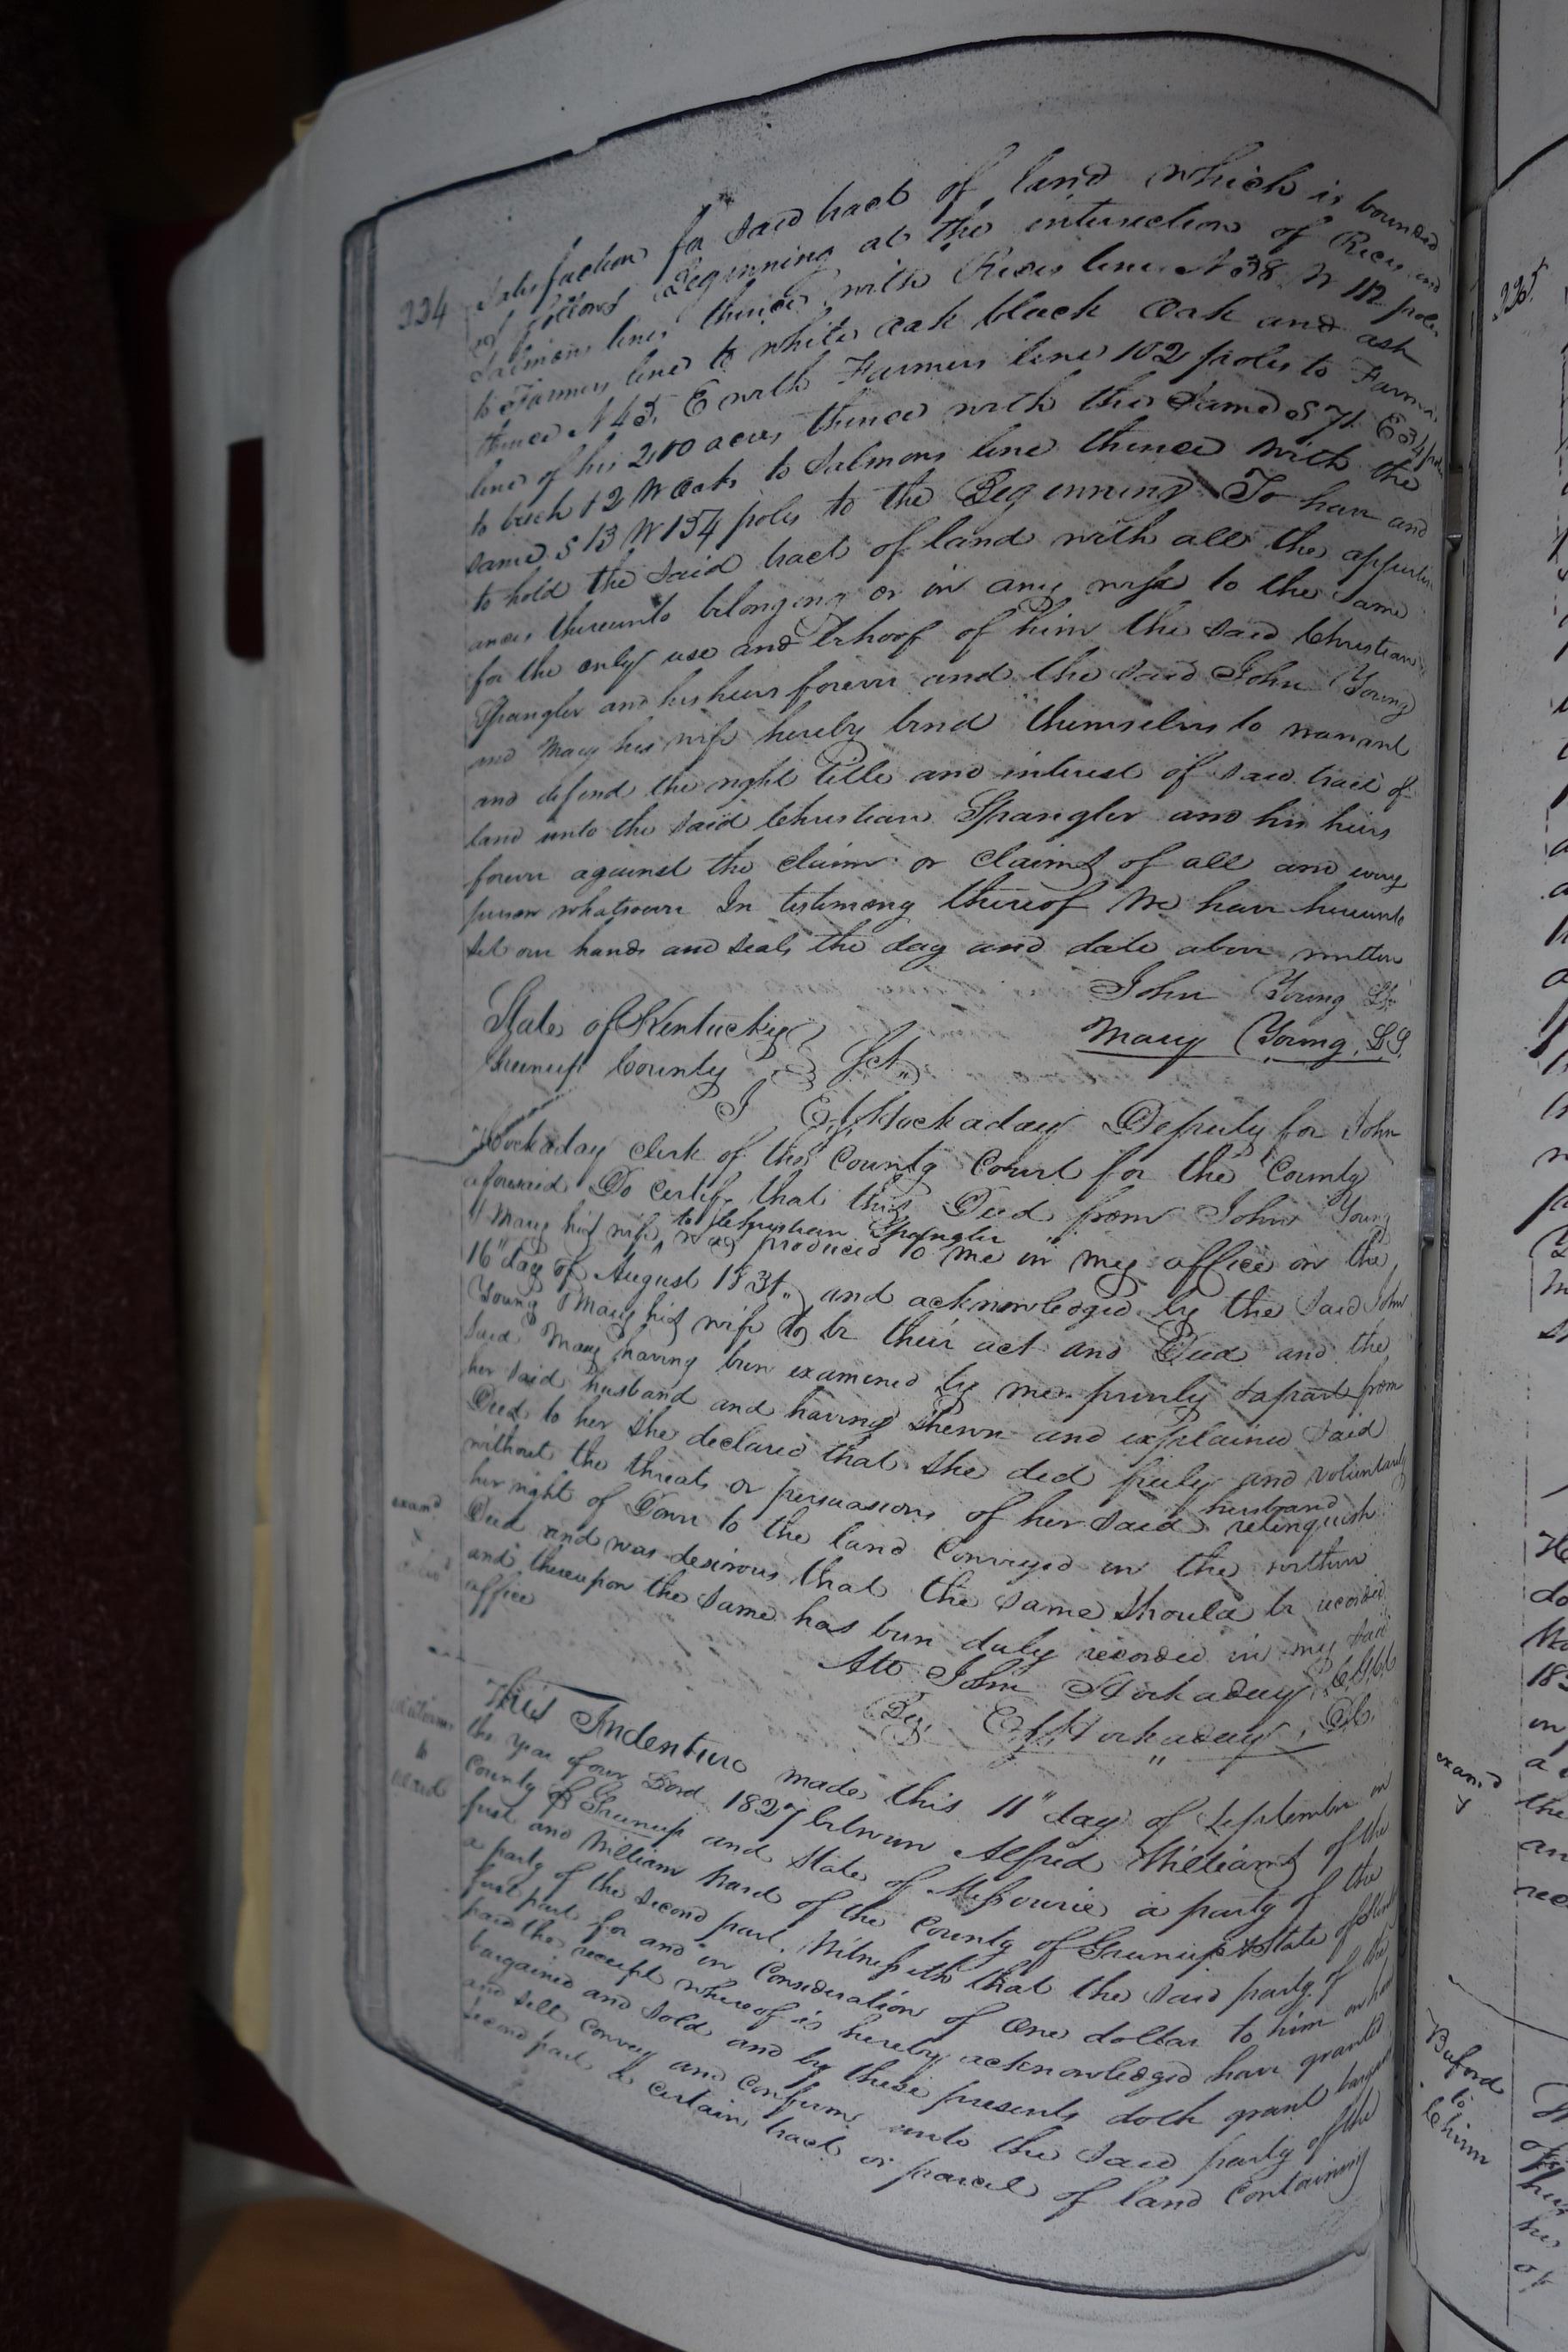 334
Satisfaction for said tract of land which is bounded
as follows Beginning at the intersection of Rices and
Salmons lines thence with Rices line N 38 W 112 poles
to Farmers line to white oak black oak and ash
thence N 45 E with Farmers line 102 poles to Farmers
line of his 200 acres thence with the same S 71 E 34 poles
to beech & 2 W oaks to Salmons line thence with the
same S 13 W 154 poles to the Beginning To have and
to hold the said tract of land with all the appurten
ances thereunto belonging or in any wise to the same
for the only use and behoof of him the said Christian
Spangler and his heirs forever and the said John Young
and Mary his wife hereby bind themselves to warrant
and defend the right title and interest of said tract of
land unto the said Christian Spangler and his heirs
forever against the claim or claims of all and every
person whatsoever In testimony thereof We have hereunto
set our hands and seals the day and date above written
John Young LS
Mary Young LS
State of Kentucky
Greenup County } Sct
I E H Hockaday Deputy for John
Hockaday clerk of the County Court for the County
aforesaid Do certify that this Deed from John Young
& Mary his wife to Christian Spangler was produced to me in my office on the
16" day of August 1831 and acknowledged by the said John
Young & Mary his wife to be their act and Deed and the
said Mary having been examined by me privily & apart from
her said husband and having shewn and explained said
Deed to her she declared that she did freely and voluntarily
without the threats or persuasions of her said husband relinquish
her right of Dower to the land conveyed in the within
Deed and was desirous that the same should be recorded
and thereupon the same has been duly recorded in my said
office
Att John Hockaday C.G.C.C
By E H Hockaday D.C.
examd
This Indenture made this 11" day of September in
the year of our Lord 1827 between Alfred Williams of the
County of Greenup and State of Missourie a party of the
first and William Ward of the County of Greenup & State
a party of the second part, Witnesseth that the said party of the
first part for and in Consideration of One dollar to him in hand
paid the receipt whereof is hereby acknowledged have granted
bargained and sold and by these presents doth grant bargain
and sell convey and confirm unto the said party of the
second part a certain tract or parcel of land Containing
335
examd
Buford
to
Chinn